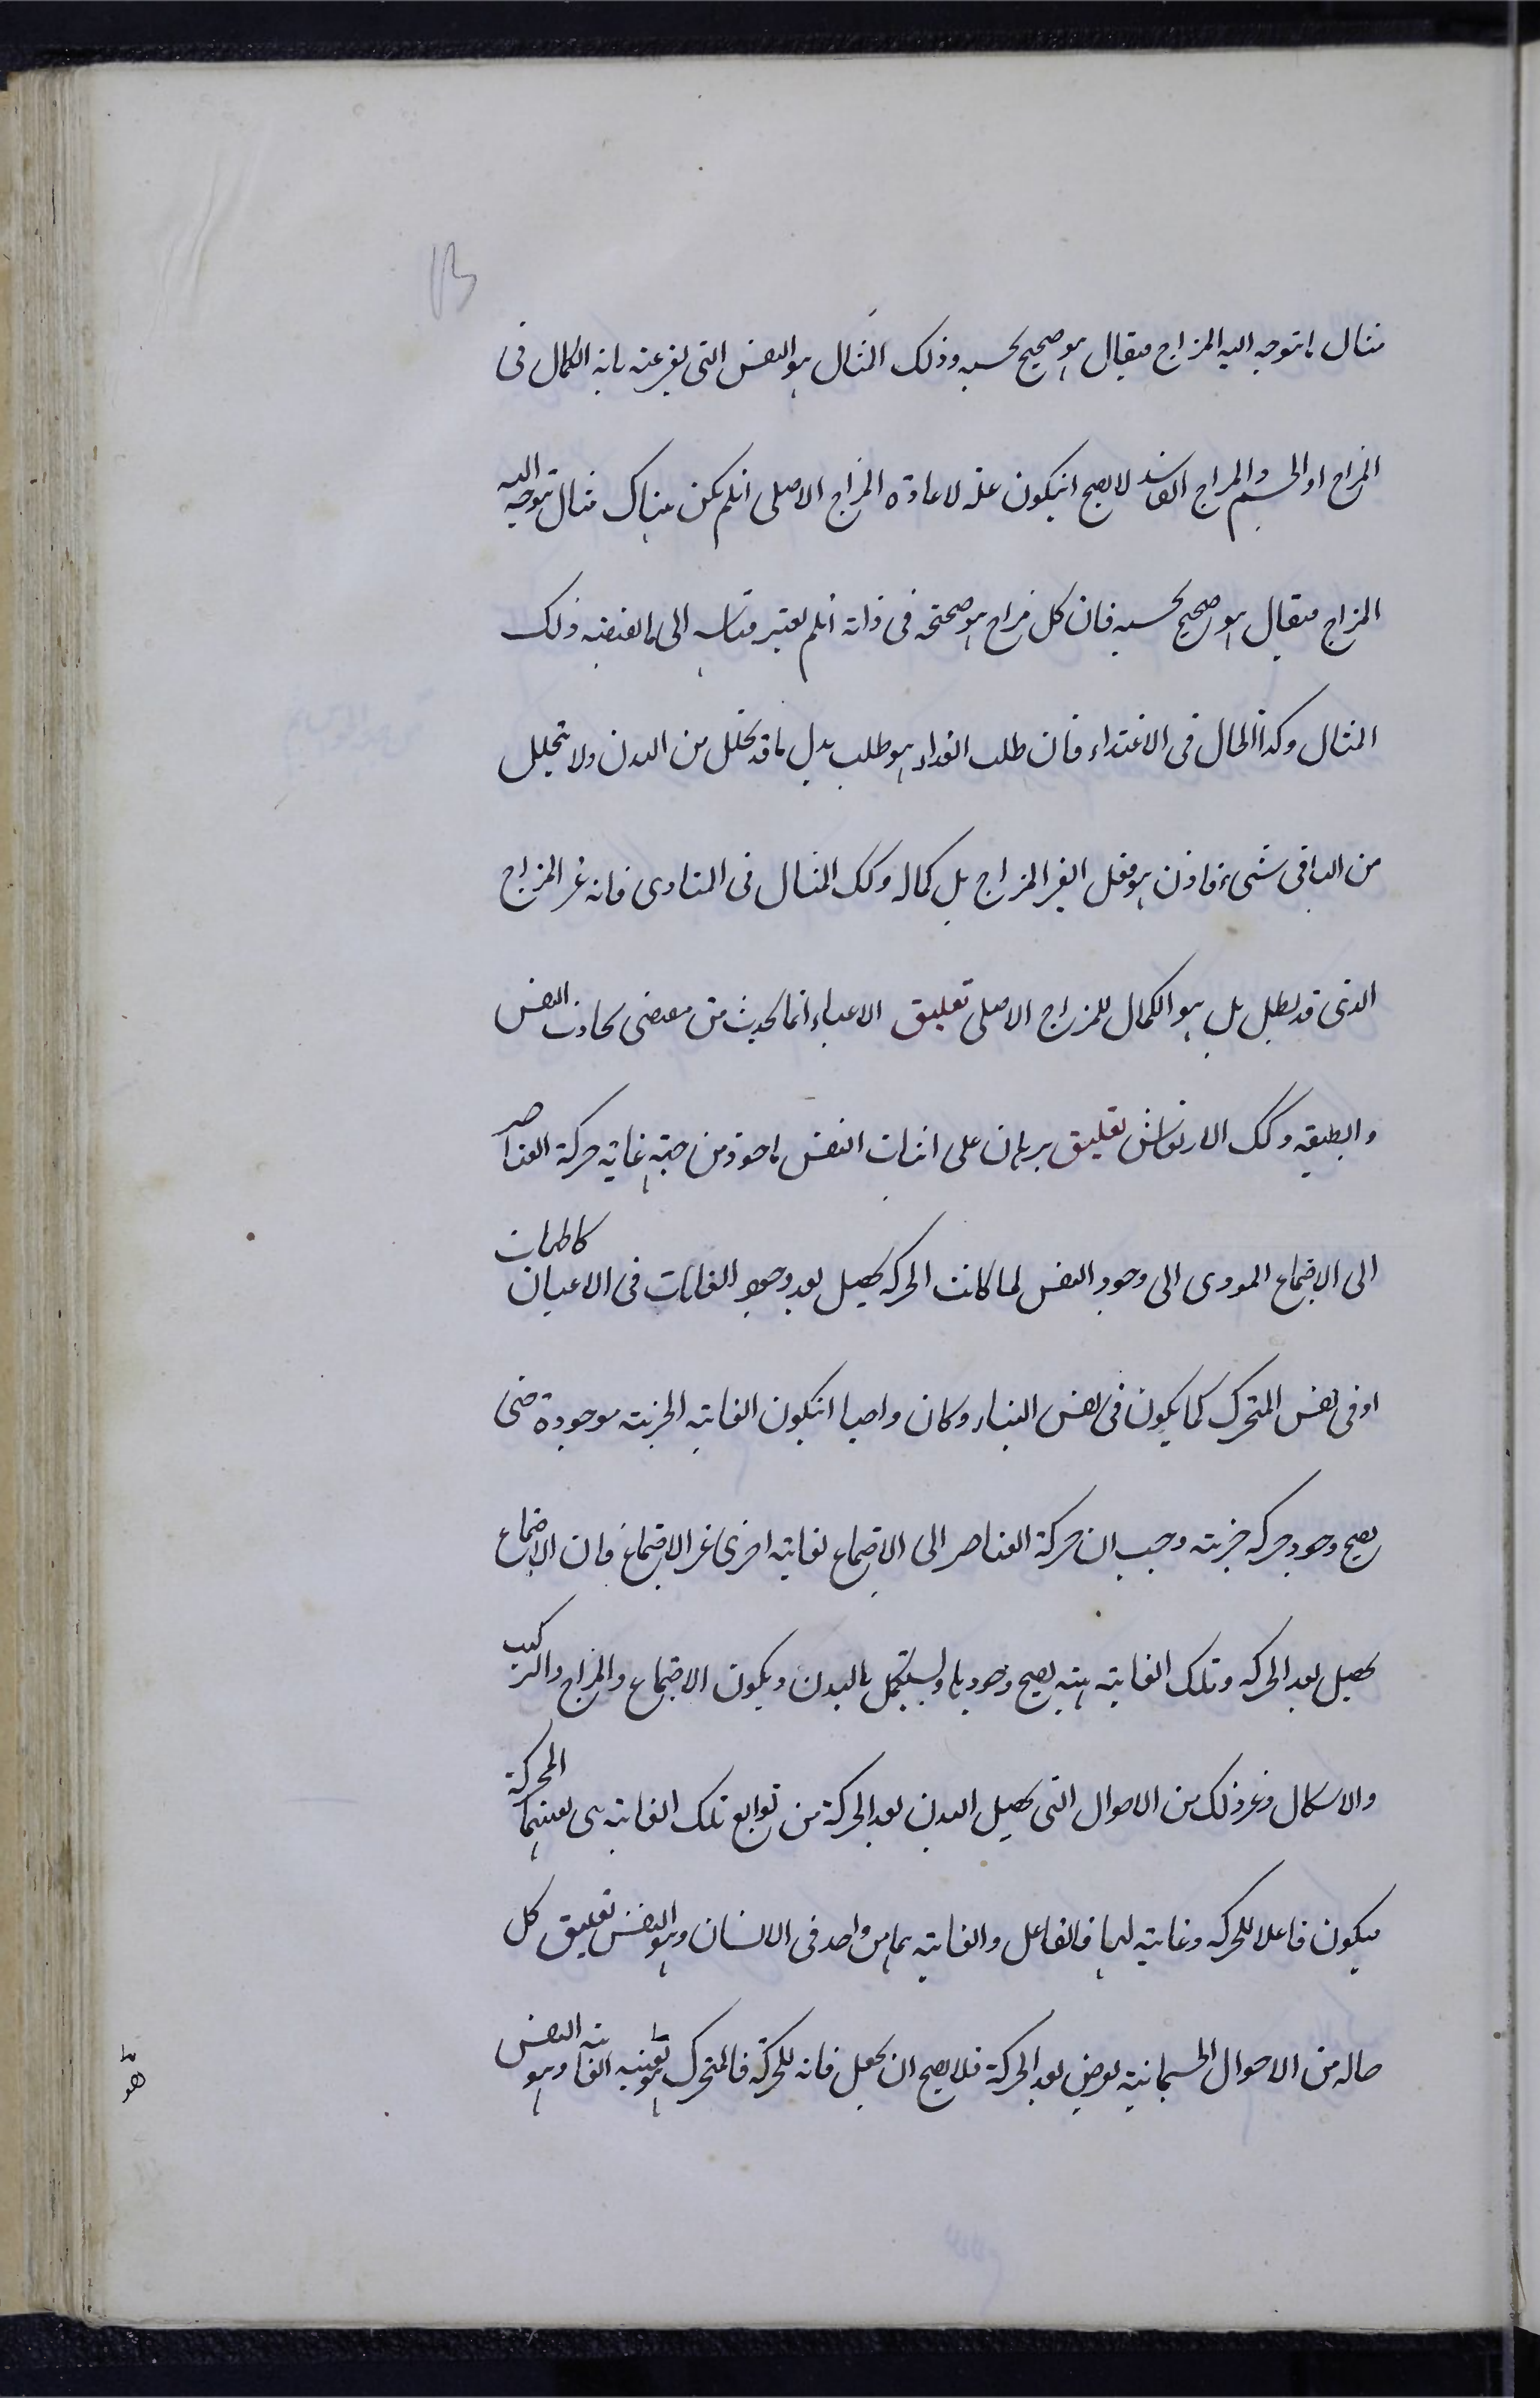 مثال ما يتوجه اليه المزاج فيقال هو صحيح بحسبه وذلك المثال هو النفس التى يعبر عنه بانه الكمال فى
المزاج او الجسم والمزاج الفاسد لا يصح انيكون علة لاعادة المزاج الاصلى انلم يكن هناك مثال يتوجه اليه
المزاج فيقال هو صحيح بحسبه فان كل مزاج هو صحته فى ذاته انلم يعتبر مقياسه الى ما يقتضيه ذلك
المثال وكذا الحال فى الاغتذاء فان طلب الغذاء هو طلب بدل ما قد تحلل من البدن ولا يتحلل
من الباقى شىء فاذن هو فعل لغير المزاج بل كماله وكك المثال فى المتاذى فانه غير المزاج
الذى قد بطل بل هو الكمال للمزاج الاصلى تعليق الاعياء انما يحدث من مقتضى تجاذب النفس
والطبيعه وكك الارتعاش تعليق برهان على اثبات النفس ماخوذ من جهة غاية حركة العناصر
الى الاجتماع المودى الى وجود النفس لما كانت الحركة تحصل بعد وجود الغايات فى الاعيان كالحركات
او فى نفس المتحرك كما يكون فى نفس البناء وكان واجبا انيكون الغاية الجزيية موجودة حتى
يصح وجود حركه جزيية وجب ان حركة العناصر الى الاجتماع لغاية اخرى غير الاجتماع فان الاجتماع
يحصل بعد الحركه وتلك الغاية هيئة يصح وجودها وليستكمل بالبدن ويكون الاجتماع والمزاج والتركيب
والاشكال وغير ذلك من الاحوال التى يحصل للبدن بعد الحركة من توابع تلك الغاية هى بعينها المحركة
فيكون فاعلا للحركه وغاية لها فالفاعل والغاية هاهنا واحد فى الانسان وهو النفس تعليق كل
حاله من الاحوال الجسمانية يعرض بعد الحركة فلا يصح ان يجعل غاية للحركة فالمتحرك هو بعينه الغاية وهو النفس
هو